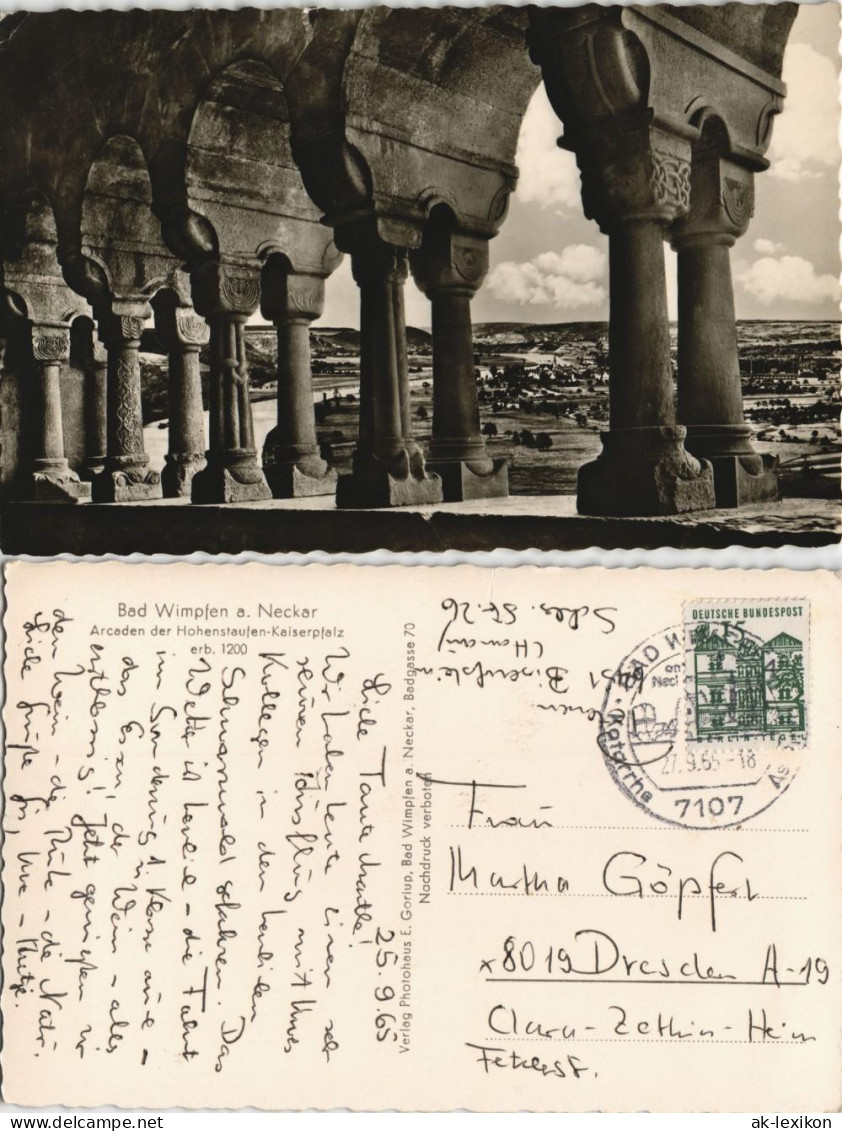 Bad Wimpfen a. Neckar
Arcaden der Hohenstaufen-Kaiserpfalz
erb. 1200
Verlag Photohaus E. Goriup, Bad Wimpfen a. Neckar, Badgasse 70
Nachdruck verboten
25.9.65
Liebe Tante Martha!
Wir haben heute einen sehr
schönen mit
Kollegen in den herrlichen
Schwarzwald gefahren. Das
Wetter ist herrlich - die Fahrt
im Sonderzug 1. Klasse auch -
das Essen, der Wein - alles
erstklassig! Jetzt genießen wir
den Wein - die Ruhe - die Natur.
Liebe Grüße
6451
DEUTSCHE BUNDESPOST
15
BAD
27.9.65-18
7107
Frau
Martha Göpfert
x8019 Dresden A-19
Clara-Zetkin-Heim
ak-lexikon